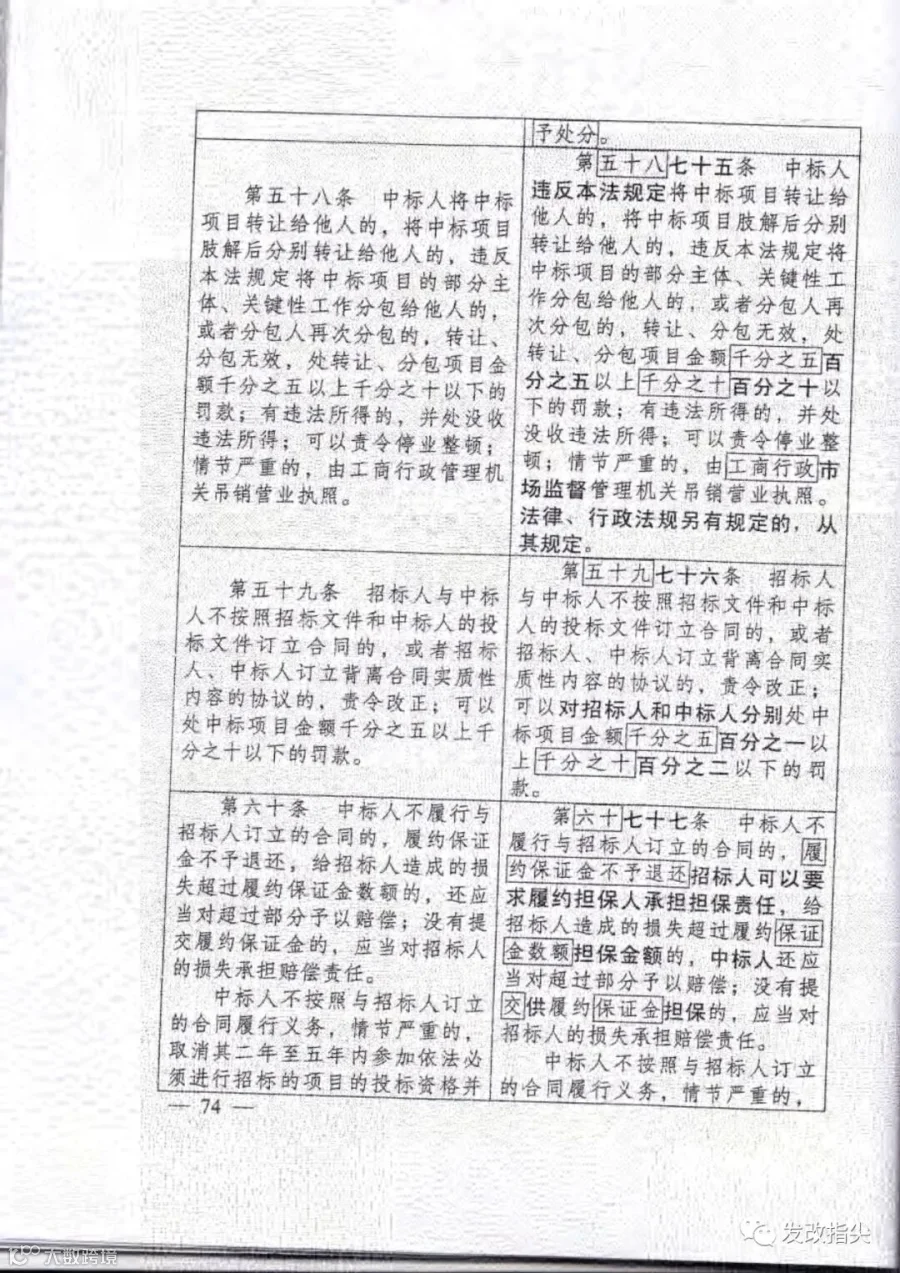 予处分。
第五十八条 中标人将中标
项目转让给他人的，将中标项目
肢解后分别转让给他人的，违反
本法规定将中标项目的部分主
体、关键性工作分包给他人的，
或者分包人再次分包的，转让、
分包无效，处转让、分包项目金
额千分之五以上千分之十以下的
罚款；有违法所得的，并处没收
违法所得；可以责令停业整顿；
情节严重的，由工商行政管理机
关吊销营业执照。
第五十八七十五条 中标人
违反本法规定将中标项目转让给
他人的，将中标项目肢解后分别
转让给他人的，违反本法规定将
中标项目的部分主体、关键性工
作分包给他人的，或者分包人再
次分包的，转让、分包无效，处
转让、分包项目金额千分之五百
分之五以上千分之十百分之十以
下的罚款；有违法所得的，并处
没收违法所得；可以责令停业整
顿；情节严重的，由工商行政市
场监督管理机关吊销营业执照。
法律、行政法规另有规定的，从
其规定。
第五十九条 招标人与中标
人不按照招标文件和中标人的投
标文件订立合同的，或者招标
人、中标人订立背离合同实质性
内容的协议的，责令改正；可以
处中标项目金额千分之五以上千
分之十以下的罚款。
第五十九七十六条 招标人
与中标人不按照招标文件和中标
人的投标文件订立合同的，或者
招标人、中标人订立背离合同实
质性内容的协议的，责令改正；
可以对招标人和中标人分别处中
标项目金额千分之五百分之一以
上千分之十百分之二以下的罚
款。
第六十条 中标人不履行与
招标人订立的合同的，履约保证
金不予退还，给招标人造成的损
失超过履约保证金数额的，还应
当对超过部分予以赔偿；没有提
交履约保证金的，应当对招标人
的损失承担赔偿责任。
中标人不按照与招标人订立
的合同履行义务，情节严重的，
取消其二年至五年内参加依法必
须进行招标的项目的投标资格并
第六十七十七条 中标人不
履行与招标人订立的合同的，履
约保证金不予退还招标人可以要
求履约担保人承担担保责任，给
招标人造成的损失超过履约保证
金数额担保金额的，中标人还应
当对超过部分予以赔偿；没有提
交供履约保证金担保的，应当对
招标人的损失承担赔偿责任。
中标人不按照与招标人订立
的合同履行义务，情节严重的，
— 74 —
发改指尖
大数跨境